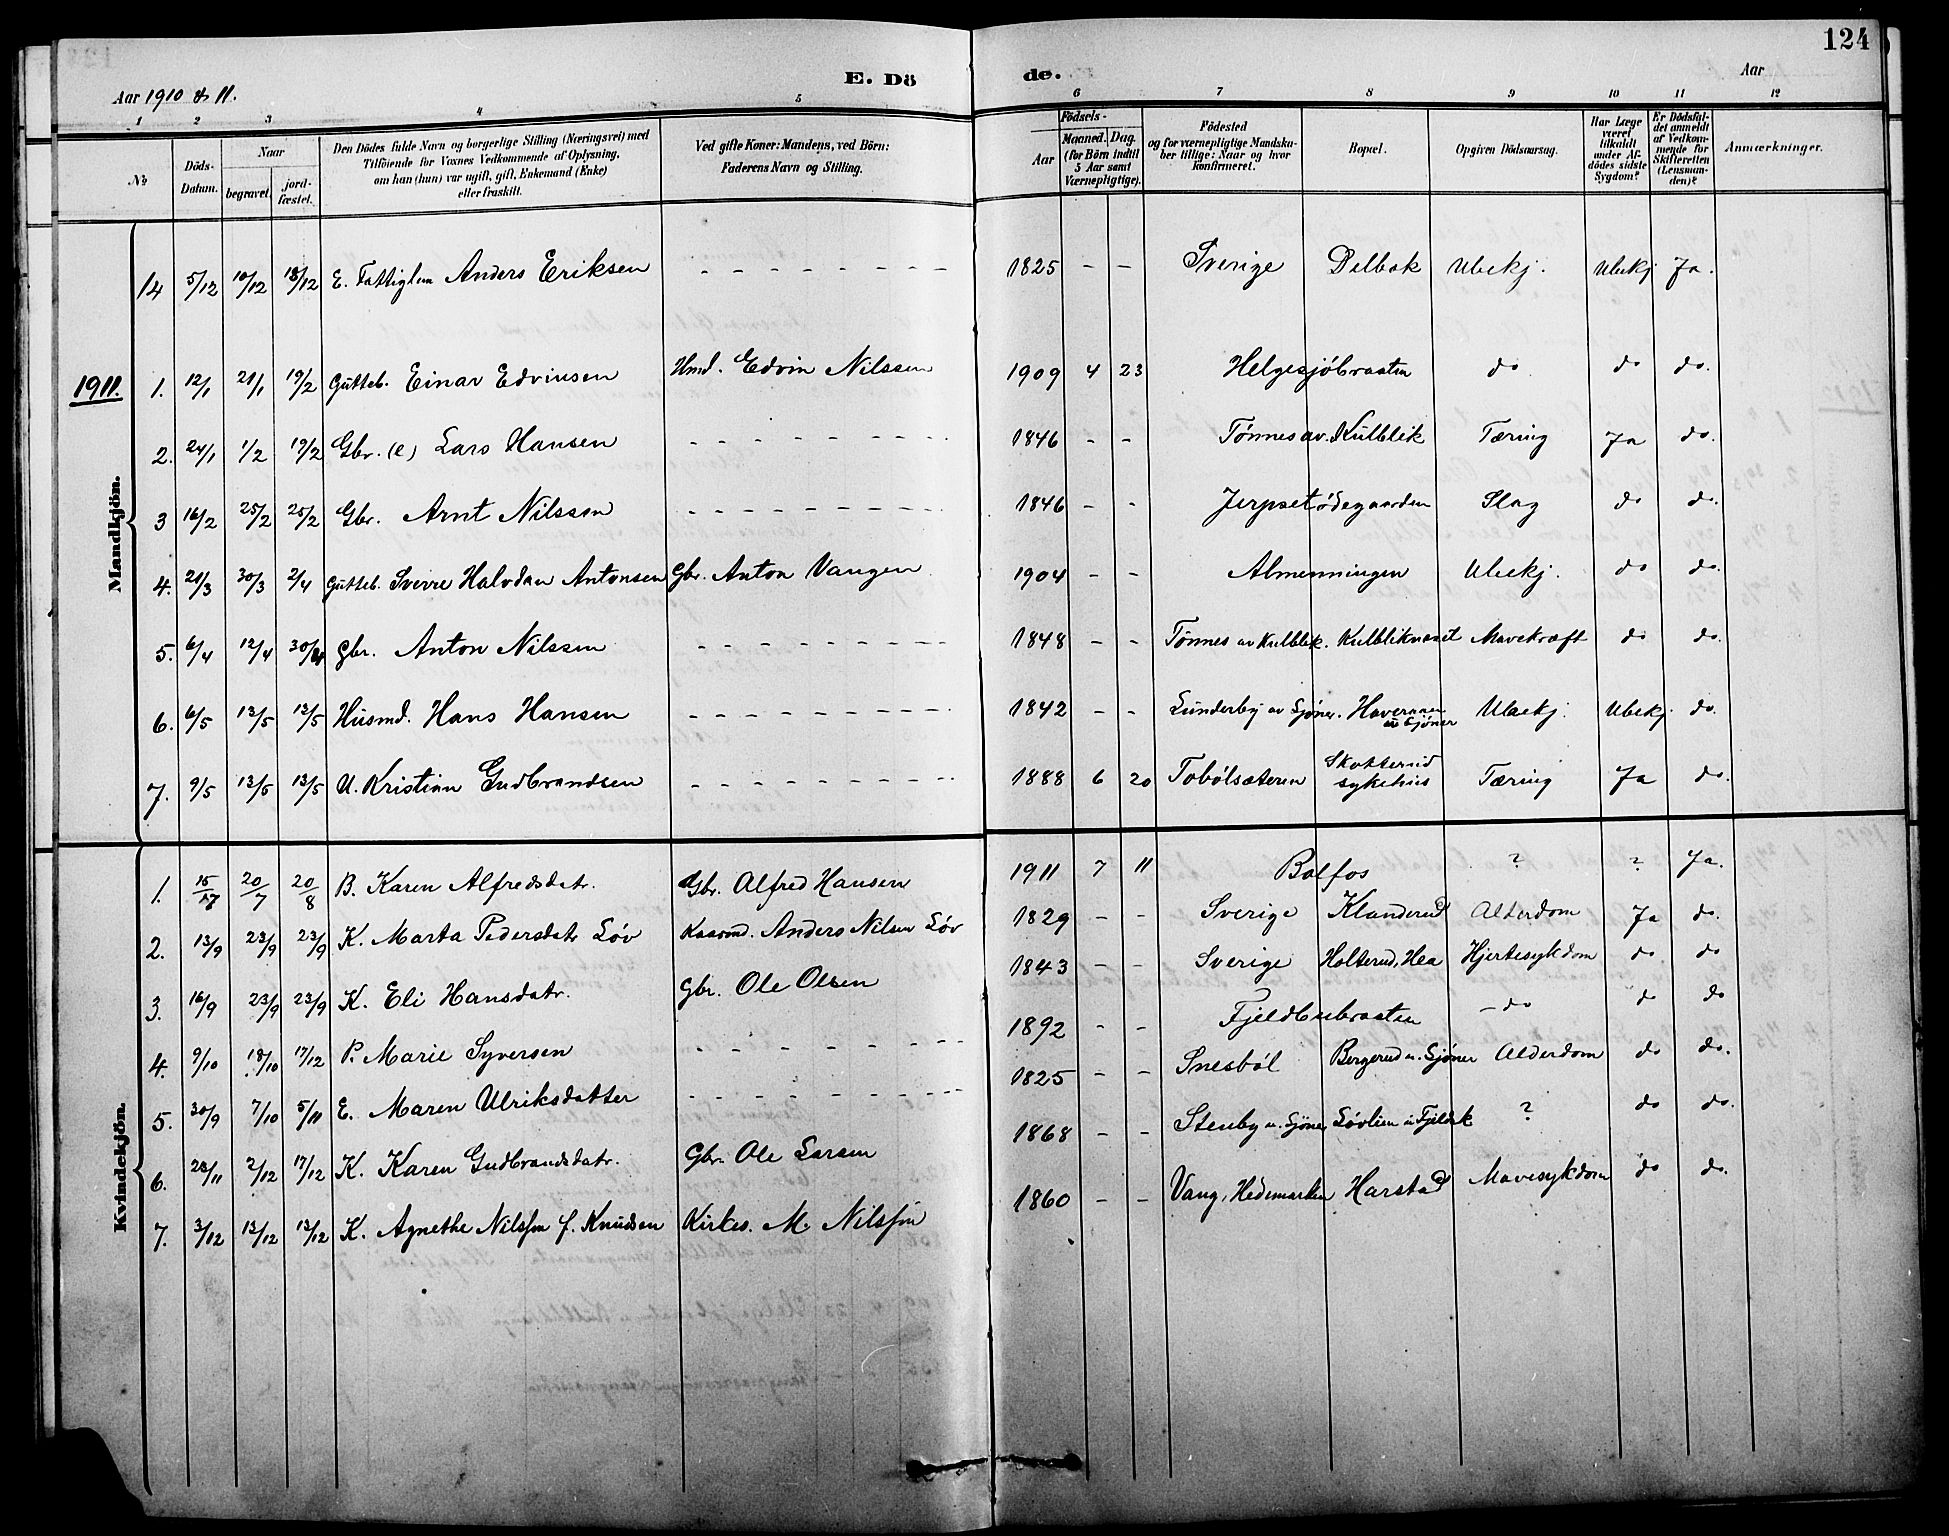 124
E. Dö de.
Aar 1910 & 11. Aar
1 2 3 4 5 6 7 8 9 10 11 12
№ Döds-Datum. Naar begravet. jord-fæstet. Den Dödes fulde Navn og borgerlige Stilling (Næringsvei) med Tilföiende for Voxnes Vedkommende af Oplysning, om han (hun) var ugift, gift, Enkemand (Enke) eller fraskilt. Ved gifte Koner: Mandens, ved Börn: Faderens Navn og Stilling. Födsels- Aar Maaned. Dag. (for Börn indtil 5 Aar samt Værnepligtige). Födested og for værnepligtige Mandskaber tillige: Naar og hvor konfirmeret. Bopæl. Opgiven Dödsaarsag. Har Læge været tilkaldt under Afdödes sidste Sygdom? Er Dödsfaldet anmeldt af Vedkommende for Skifteretten (Lensmanden)? Anmærkninger.
Mandkjön.
14 5/12 10/12 18/12 E. Fattiglem Anders Eriksen - - - - - - - - 1825 - - Sverige Delbak Ubekj. Ubekj Ja.
1911.
1. 12/1 21/1 19/2 Gutteb. Einar Edvinsen Hmd. Edvin Nilssen 1909 4 23 Helgesjöbraaten do do do.
2. 24/1 1/2 19/2 Gbr. (e) Lars Hansen - - - - - - - - 1846 - - Tønnes av. Kulblik Tæring Ja do.
3 16/2 25/2 25/2 Gbr. Arnt Nilssen - - - - - - - - - 1846 - - Jerpsetødegaarden Slag do do.
4. 21/3 30/3 2/4 Gutteb. Sverre Halvdan Antonsen Gbr. Anton Vangen 1904 - - Almenningen Ubekj. do do.
5. 6/4 12/4 30/4 Gbr. Anton Nilssen - - - - - - - - 1848 - - Tønnes av Kulblik. Kulbliknæset Mavekræft do do.
6. 6/5 13/5 13/5 Husmd. Hans Hansen - - - - - - - - - 1842 - - Lunderby av Sjöner. Haveraaen u Sjöner Ubekj. Ubekj do.
7. 9/5 13/5 13/5 U. Kristian Gudbrandsen - - - - - - - - - 1888 6 20 Tobölsæteren Skotterud sykehus Tæring Ja do.
Kvindekjön.
1. 15/7 20/7 20/8 B. Karen Alfredsdatr. Gbr. Alfred Hansen 1911 7 11 Bolfos ? ? Ja.
2. 13/9 23/9 23/9 K. Marta Pedersdatr Löv Kaarmd. Anders Nilsen Löv 1829 - - Sverige Klanderud Alderdom Ja do.
3. 16/9 23/9 23/9 K. Eli Hansdatr. Gbr. Ole Olsen 1843 - - Sverige Holterud, Hea Hjertesykdom do do
4. 9/10 18/10 17/12 P. Marie Syversen - - - - - - - - - 1892 - - Fjeldbubraaten - do do do
5. 30/9 7/10 5/11 E. Maren Ulriksdatter - - - - - - - - - 1825 - - Snesböl Bergerud u. Sjöner Alderdom do do.
6. 23/11 2/12 17/12 K. Karen Gudbrandsdatr. Gbr. Ole Larsen 1868 - - Stenby u. Sjöner Lövlien u Fjeldsk ? do do.
7. 3/12 13/12 13/12 K. Agnethe Nilsson f. Knudsen Kirkes. M. Nilsson 1860 - - Vang, Hedemarken Harstad Mavesykdom do do.